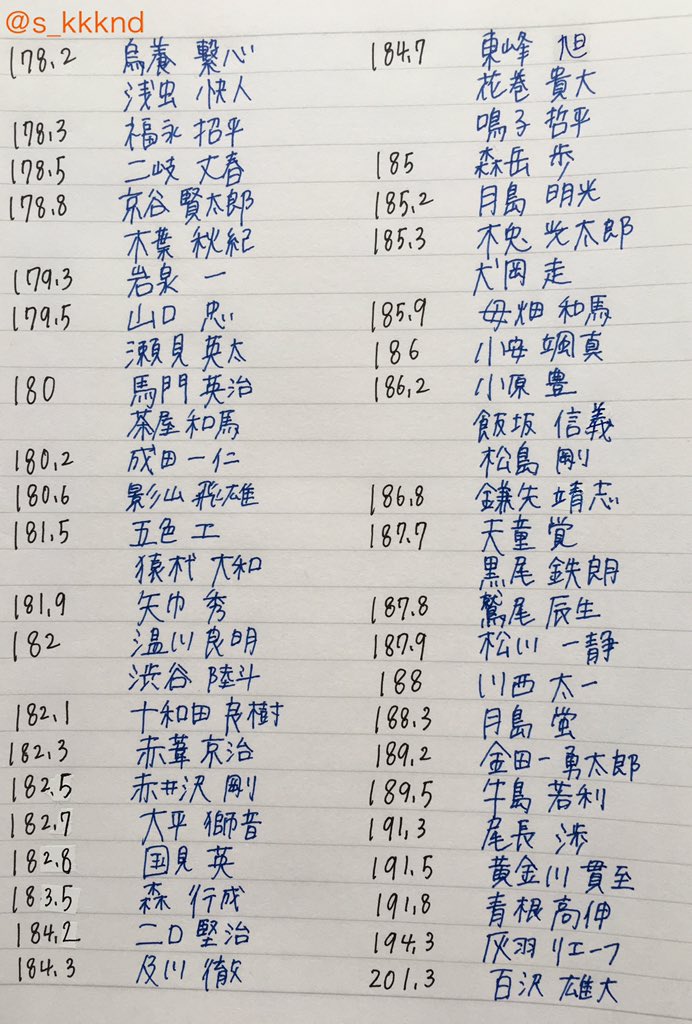 @s_kkknd
178.2 烏養 繋心
浅虫 快人
178.3 福永 招平
178.5 二岐 丈春
178.8 京谷 賢太郎
木葉 秋紀
179.3 岩泉 一
179.5 山口 忠
瀬見 英太
180 馬門 英治
茶屋 和馬
180.2 成田 一仁
180.6 影山 飛雄
181.5 五色 工
猿杙 大和
181.9 矢巾 秀
182 温川 良明
渋谷 陸斗
182.1 十和田 良樹
182.3 赤葦 京治
182.5 赤井沢 剛
182.7 大平 獅音
182.8 国見 英
183.5 森 行成
184.2 二口 堅治
184.3 及川 徹
184.7 東峰 旭
花巻 貴大
鳴子 哲平
185 森岳 歩
185.2 月島 明光
185.3 木兎 光太郎
犬岡 走
185.9 母畑 和馬
186 小安 颯真
186.2 小原 豊
飯坂 信義
松島 剛
186.8 鎌先 靖志
187.7 天童 覚
黒尾 鉄朗
187.8 鷲尾 辰生
187.9 松川 一静
188 川西 太一
188.3 月島 蛍
189.2 金田一 勇太郎
189.5 牛島 若利
191.3 尾長 渉
191.5 黄金川 貫至
191.8 青根 高伸
194.3 灰羽 リエーフ
201.3 百沢 雄大